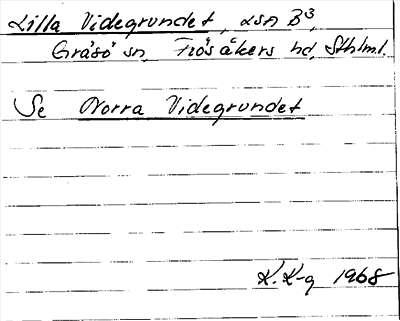 Lilla Videgrundet, LSA B³,
Gräsö sn, Frösåkers hd, Sthlm l.
Se Norra Videgrundet
K. K-g 1968